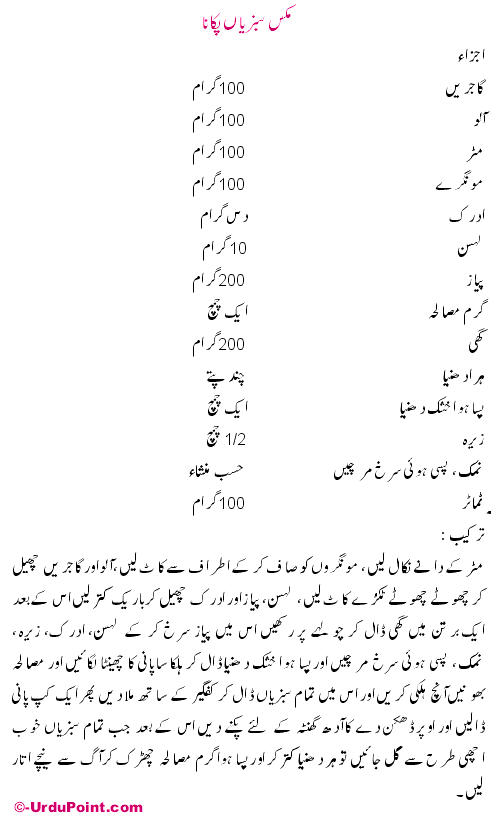 مکس سبزیاں پکانا
اجزاء
گاجریں 100گرام
آلو 100گرام
مٹر 100گرام
مونگرے 100گرام
ادرک دس گرام
لہسن 10گرام
پیاز 200گرام
گرم مصالحہ ایک چمچ
گھی 200گرام
ہرا دھنیا چند پتے
پسا ہوا خشک دھنیا ایک چمچ
زیرہ 1/2 چمچ
نمک، پسی ہوئی سرخ مرچیں حسب منشاء
ٹماٹر 100گرام
ترکیب :
مٹر کے دانے نکال لیں، مونگروں کو صاف کر کے اطراف سے کاٹ لیں،آلو اور گاجریں چھیل
کر چھوٹے چھوٹے ٹکڑے کاٹ لیں، لہسن، پیاز اور ادرک چھیل کر باریک کتر لیں اس کے بعد
ایک برتن میں گھی ڈال کر چولہے پر رکھیں اس میں پیاز سرخ کر کے لہسن، ادرک، زیرہ،
نمک، پسی ہوئی سرخ مرچیں اور پسا ہوا خشک دھنیا ڈال کر ہلکا سا پانی کا چھینٹا لگائیں اور مصالحہ
بھونیں آنچ ہلکی کریں اور اس میں تمام سبزیاں ڈال کر کفگیر کے ساتھ ملا دیں پھر ایک کپ پانی
ڈالیں اور اوپر ڈھکن دے کا آدھ گھنٹہ کے لئے پکنے دیں اس کے بعد جب تمام سبزیاں خوب
اچھی طرح سے گل جائیں تو ہر دھنیا کتر کر اور پسا ہوا گرم مصالحہ چھڑک کر آگ سے نیچے اتار
لیں۔
©-UrduPoint.com